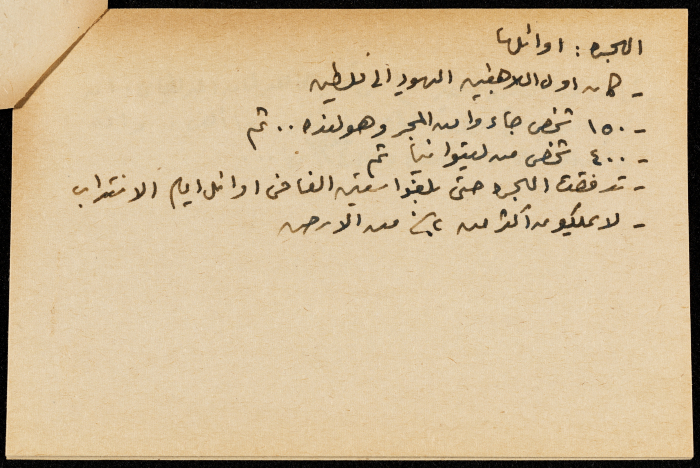 الهجرة : اوائلها
- كان اول اللاجئين اليهود الى فلسطين
- ١٥٠ شخص جاءوا من المجر وهولنده .. ثم
- ٤٠٠ شخص من ليتوانيا ثم
- تدفقت الهجرة حتى بلغوا ستين الفا في اوائل ايام الانتداب
- لا يملكون اكثر من ٢٪ من الارض